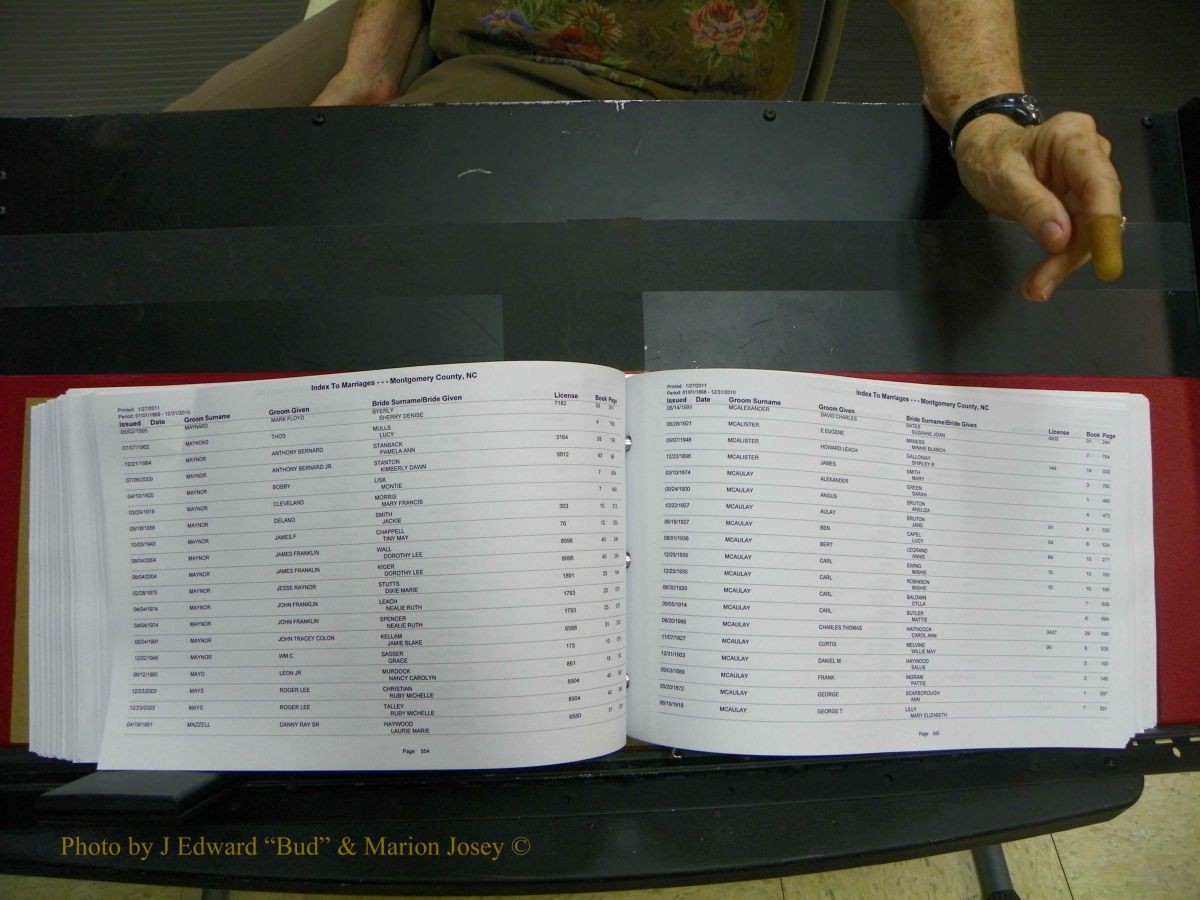 Index To Marriages - - - Montgomery County, NC
Printed: 1/27/2011
Period: 01/01/1868 - 12/31/2010
Issued Date Groom Surname Groom Given Bride Surname/Bride Given License Book Page
06/02/1995 MAYNARD MARK FLOYD BYERLY 7182 33
SHERRY DENISE
07/07/1902 MAYNONS THOS MULLS 4
LUCY
12/21/1984 MAYNOR ANTHONY BERNARD STANBACK 3164 28
PAMELA ANN
07/06/2009 MAYNOR ANTHONY BERNARD JR. STANTON 9812 43
KIMBERLY DAWN
04/10/1920 MAYNOR BOBBY LISK 7
MONTIE
03/29/1919 MAYNOR CLEVELAND MORRIS 7
MARY FRANCIS
09/16/1956 MAYNOR DELANO SMITH 303 15
JACKIE
10/03/1943 MAYNOR JAMES F CHAPPELL 76 12
TINY MAY
08/04/2004 MAYNOR JAMES FRANKLIN WALL 8996 40
DOROTHY LEE
08/04/2004 MAYNOR JAMES FRANKLIN KIGER 8996 40
DOROTHY LEE
02/28/1975 MAYNOR JESSE RAYNOR STUTTS 1891 23
DIXIE MARIE
04/04/1974 MAYNOR JOHN FRANKLIN LEACH 1793 23
NEALIE RUTH
04/04/1974 MAYNOR JOHN FRANKLIN SPENCER 1793 23
NEALIE RUTH
05/24/1991 MAYNOR JOHN TRACEY COLON KELLAM 6568 31
JAMIE BLAKE
12/22/1945 MAYNOR WM C SASSER 173 13
GRACE
06/12/1965 MAYO LEON JR MURDOCK 861 18
NANCY CAROLYN
12/23/2003 MAYS ROGER LEE CHRISTIAN 8904 40
RUBY MICHELLE
12/23/2003 MAYS ROGER LEE TALLEY 8904 40
RUBY MICHELLE
04/19/1991 MAZZELL DANNY RAY SR HAYWOOD 6580 31
LAURIE MARIE
Page: 554
Index To Marriages - - - Montgomery County, NC
Printed: 1/27/2011
Period: 01/01/1868 - 12/31/2010
Issued Date Groom Surname Groom Given Bride Surname/Bride Given License Book Page
06/14/1991 MCALEXANDER DAVID CHARLES BATES 6600 31 244
SUZANNE JOAN
06/28/1921 MCALISTER E EUGENE MANESS 7 764
MINNIE BLANCH
09/07/1948 MCALISTER HOWARD LEACH GALLOWAY 149 14 032
SHIRLEY B
12/22/1896 MCALISTER JAMES SMITH 3 702
MARY
03/10/1874 MCAULAY ALEXANDER GREEN 1 460
SARAH
09/24/1900 MCAULAY ANGUS BRUTON 4 473
ANELIZA
10/22/1927 MCAULAY AULAY BRUTON 91 8 533
JANE
06/18/1927 MCAULAY BEN CAPEL 54 8 534
LUCY
08/01/1936 MCAULAY BERT LEGRAND 64 10 271
ANNIE
12/25/1935 MCAULAY CARL EWING 10 10 160
MISHIE
12/25/1935 MCAULAY CARL ROBINSON 10 10 160
MISHIE
06/30/1920 MCAULAY CARL BALDWIN 7 639
CYLLA
09/05/1914 MCAULAY CARL BUTLER 6 894
MATTIE
08/20/1986 MCAULAY CHARLES THOMAS HAITHCOCK 3437 29
CAROL ANN
11/07/1927 MCAULAY CURTIS MELVINE 96 8 535
WILLIE MAY
12/31/1903 MCAULAY DANIEL M HAYWOOD 5 193
SALLIE
09/03/1889 MCAULAY FRANK INGRAM 3 146
PATTIE
05/20/1872 MCAULAY GEORGE SCARBOROUGH 1 297
ANN
06/19/1918 MCAULAY GEORGE T LILLY 7 331
MARY ELIZABETH
Page
Photo by J Edward “Bud” & Marion Josey ©